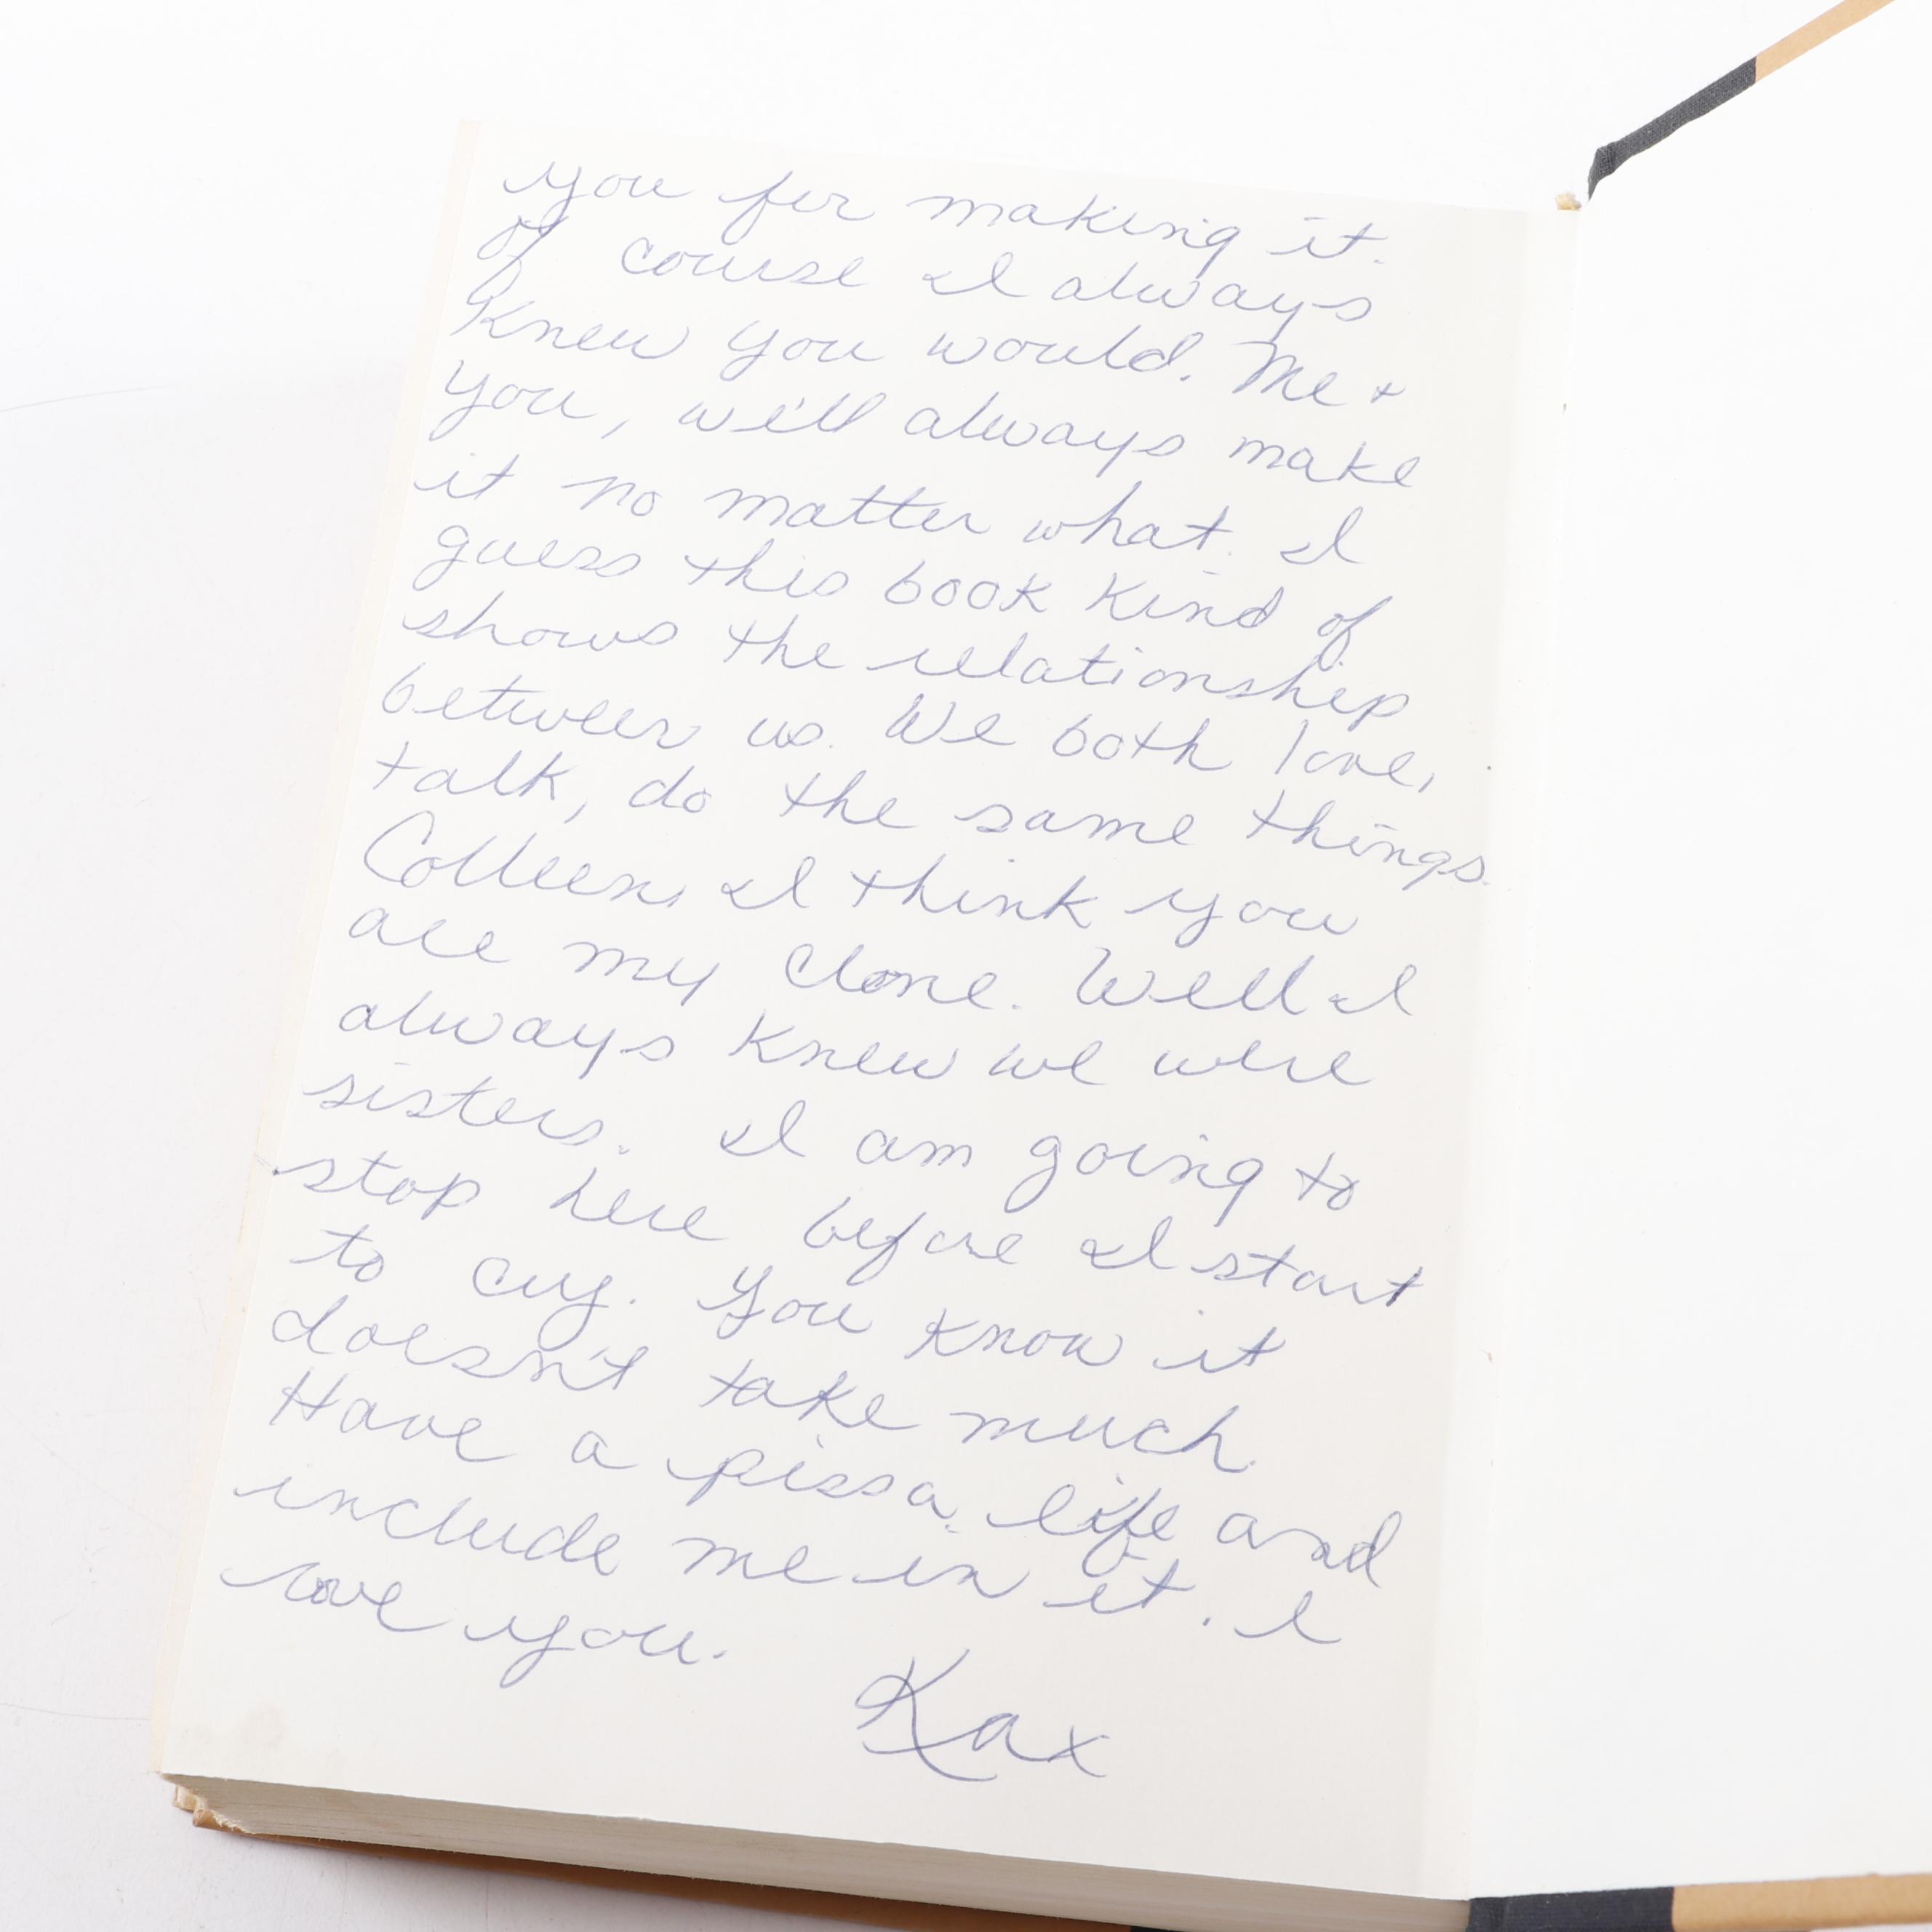 you for making it.
of course I always
knew you would. Me +
you, we'll always make
it no matter what. I
guess this book kind of
shows the relationship
between us. We both love,
talk, do the same things.
Colleen, I think you
are my clone. Well I
always knew we were
sisters. I am going to
stop here before I start
to cry. You know it
doesn't take much.
Have a pissa life and
include me in it. I
love you.
Kax